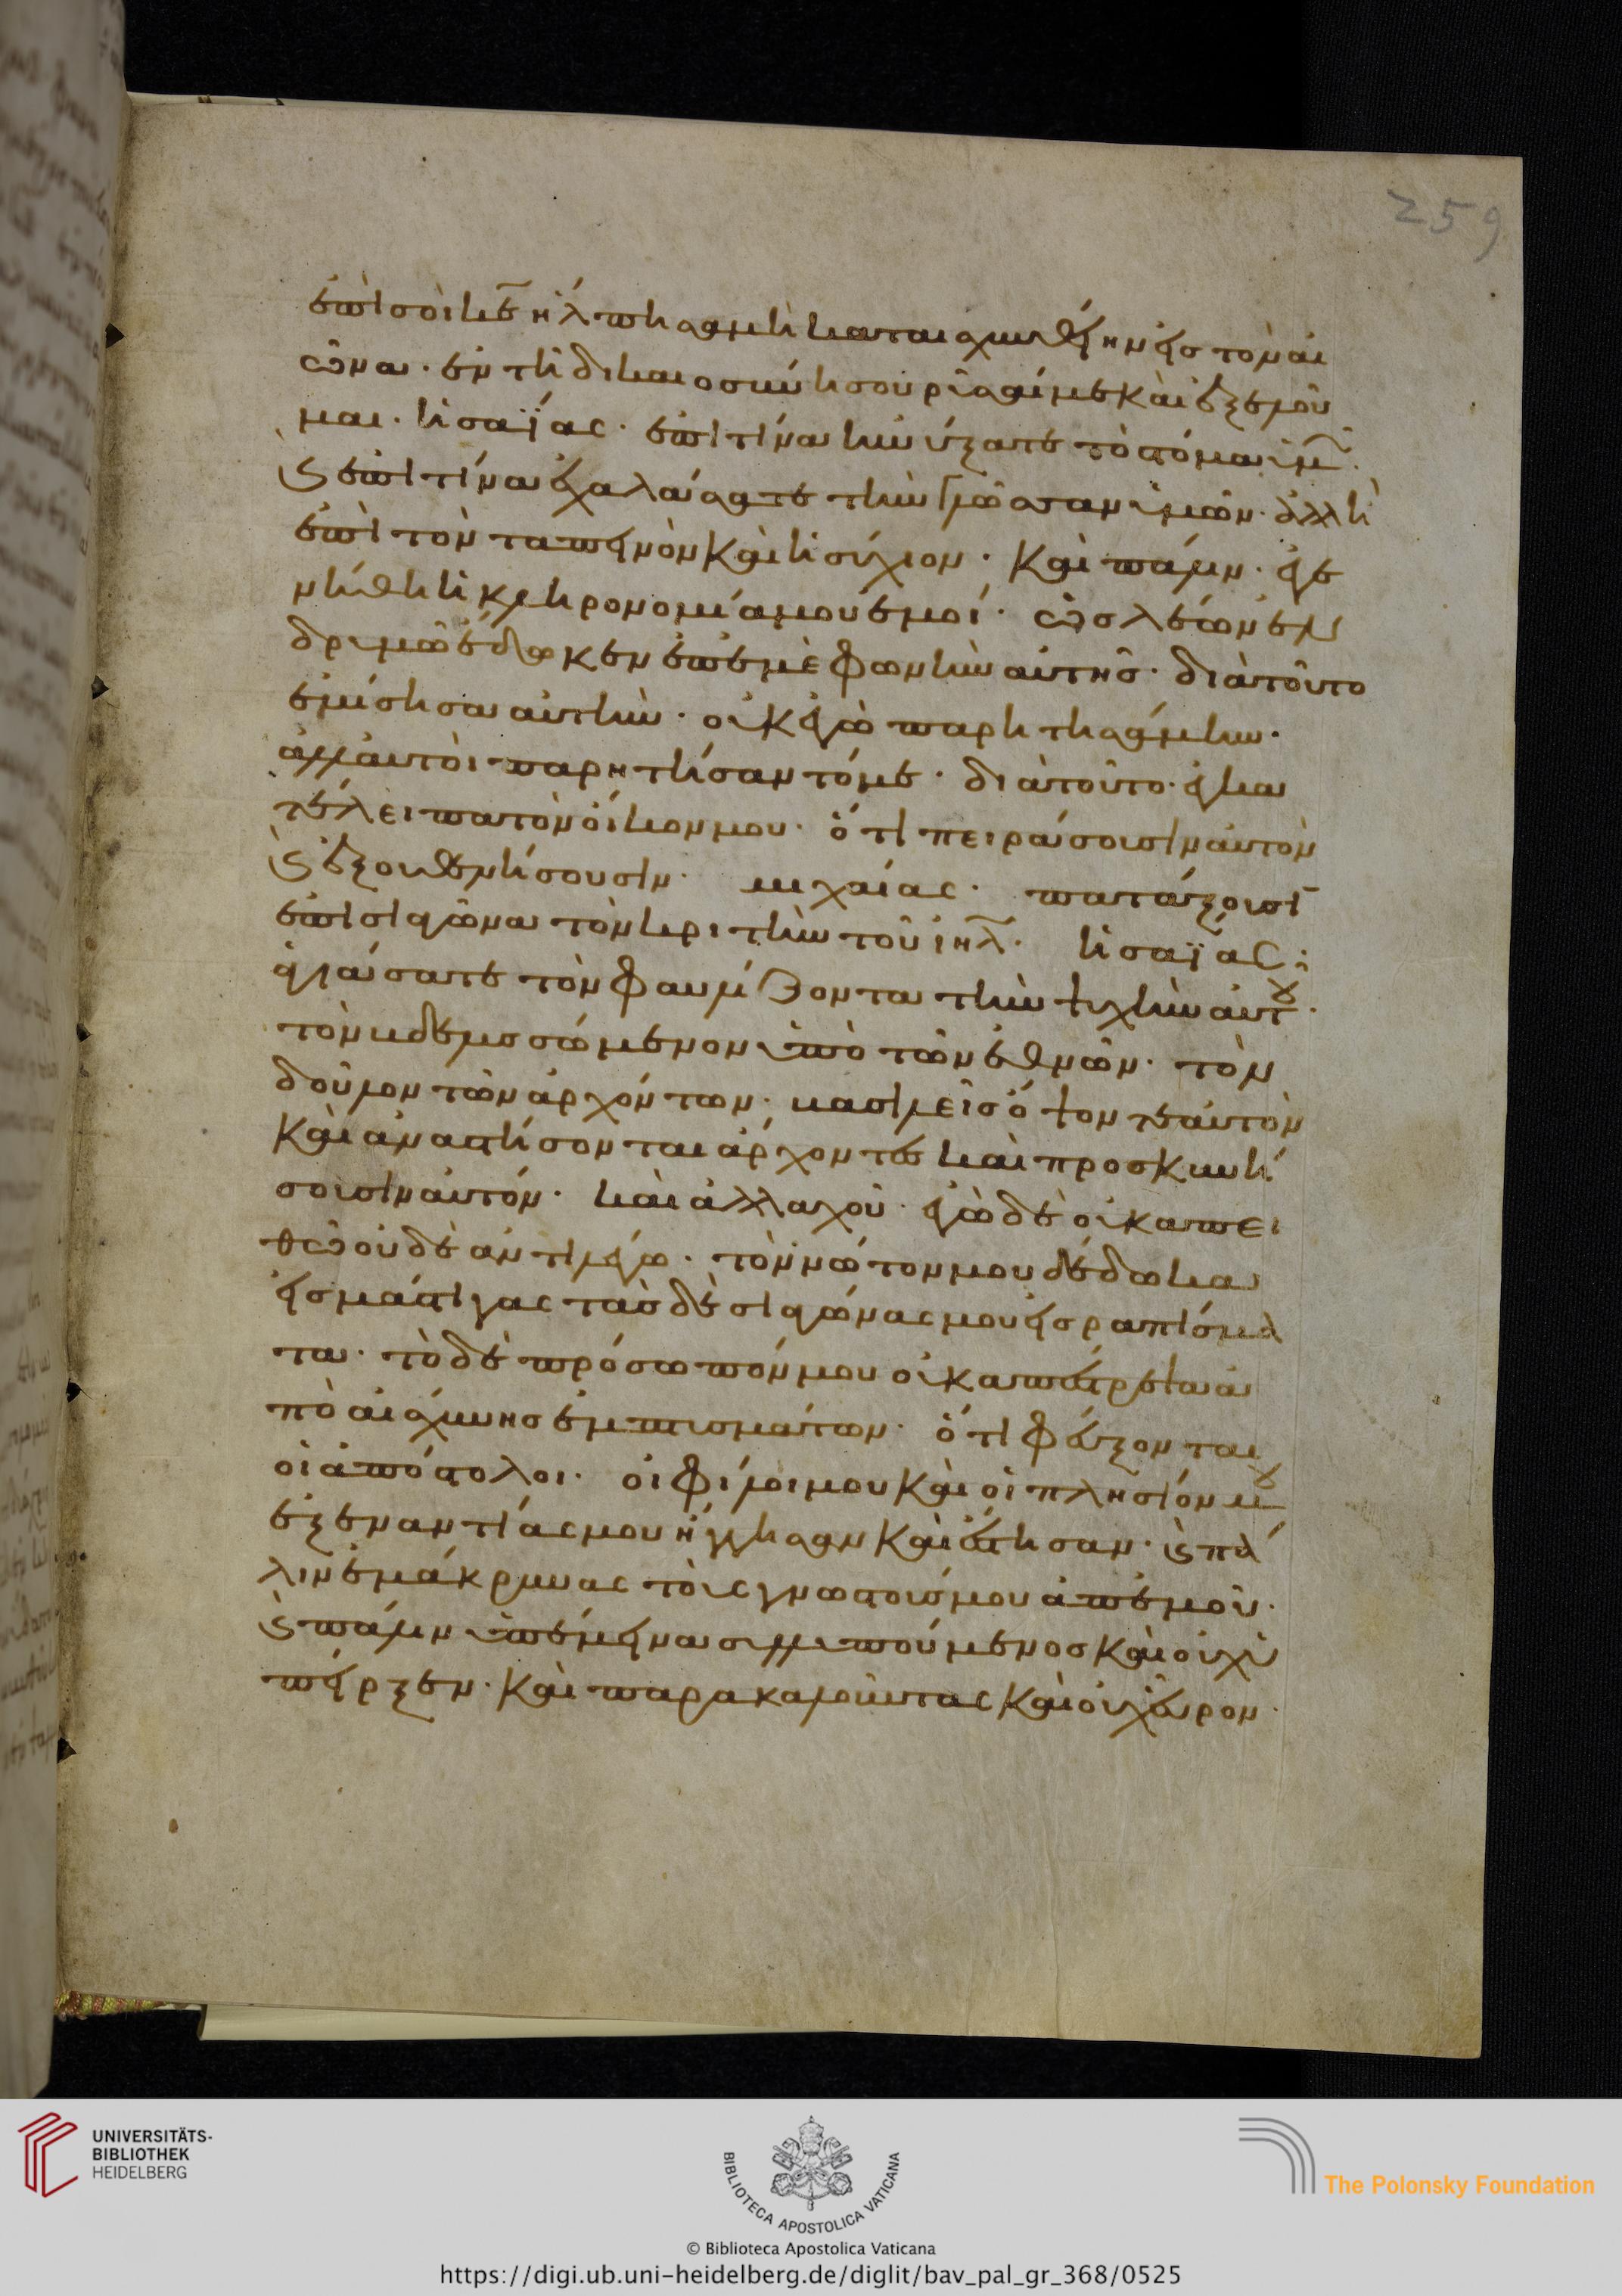 259
ἐπὶ σοὶ κε̅ ἤλπησα μὴ καταισχυνθείην εἰς τὸν αἰ
ῶνα. ἐν τῆ δικαιοσύνη σου ρῦσαί με καὶ ἐξελοῦ
μαι. ἡσαΐας. ἐπὶ τίνα ἠνύξατε τὸ στόμα ὑμ̅.
ϗ ἐπὶ τίνα ἐχαλάσατε τὴν γλῶσσαν ὑμῶν. ἀλλ ἢ
ἐπὶ τὸν ταπεινὸν καὶ ἡσύχιον. καὶ πάλιν. ἐγε
νήθη ἡ κληρονομία μου ἐμοί. ὡς λέων ἐν
δρυμῶ ἔδωκεν ἐπ ἐμὲ φωνὴν αὐτῆς. διὰ τοῦτο
ἐμίσησα αὐτήν. οὐκ ἐγὼ παρητησάμην.
ἀλλ αὐτοὶ παρητήσαντό με. διὰ τοῦτο. ἐγκα
τέλειπα τὸν οἶκον μου. ὅτι πειράσουσιν αὐτὸν
ϗ ἐξουθενήσουσιν. μιχαίας. πατάξουσι̅
ἐπὶ σιαγῶνα τὸν κριτὴν τοῦ ιηλ̅. ἡσαΐας:
ἁγιάσατε τὸν φαυλίζοντα τὴν ψυχὴν αὐτοῦ.
τὸν βδελυσσώμενον ὑπὸ τῶν ἐθνῶν. τὸν
δοῦλον τῶν ἀρχόντων. βασιλεῖς ὄψονται αὐτὸν
καὶ ἀναστήσονται ἄρχοντες καὶ προσκυνή
σουσιν αὐτόν. καὶ ἀλλαχοῦ. ἐγὼ δὲ οὐκ ἀπει
θῶ οὐδὲ ἀντιλέγω. τὸν νώτον μου δέδωκα
εἰς μάστιγας τὰς δὲ σιαγώνας μου εἰς ραπίσμα
τα. τὸ δὲ πρόσωπόν μου οὐκ ἀπέστρεψα ἀ
πὸ αἰσχύνης ἐμπτυσμάτων. ὅτι φεύξονται
οἱ ἀπόστολοι. οἱ φίλοι μου καὶ οἱ πλησίον μου
ἐξεναντίας μου ἤγγησαν καὶ ἔστησαν. ϗ πά
λιν ἐμάκρυνας τοὺς γνωστούς μου ἀπ ἐμοῦ.
ϗ πάλιν ὑπέμεινα συλλυπούμενος καὶ οὐχ ὑ
πῆρξεν. καὶ παρακαλοῦντας καὶ οὐχ εὗρον.
UNIVERSITÄTS-
BIBLIOTHEK
HEIDELBERG
BIBLIOTECA APOSTOLICA VATICANA
The Polonsky Foundation
© Biblioteca Apostolica Vaticana
https://digi.ub.uni-heidelberg.de/diglit/bav_pal_gr_368/0525